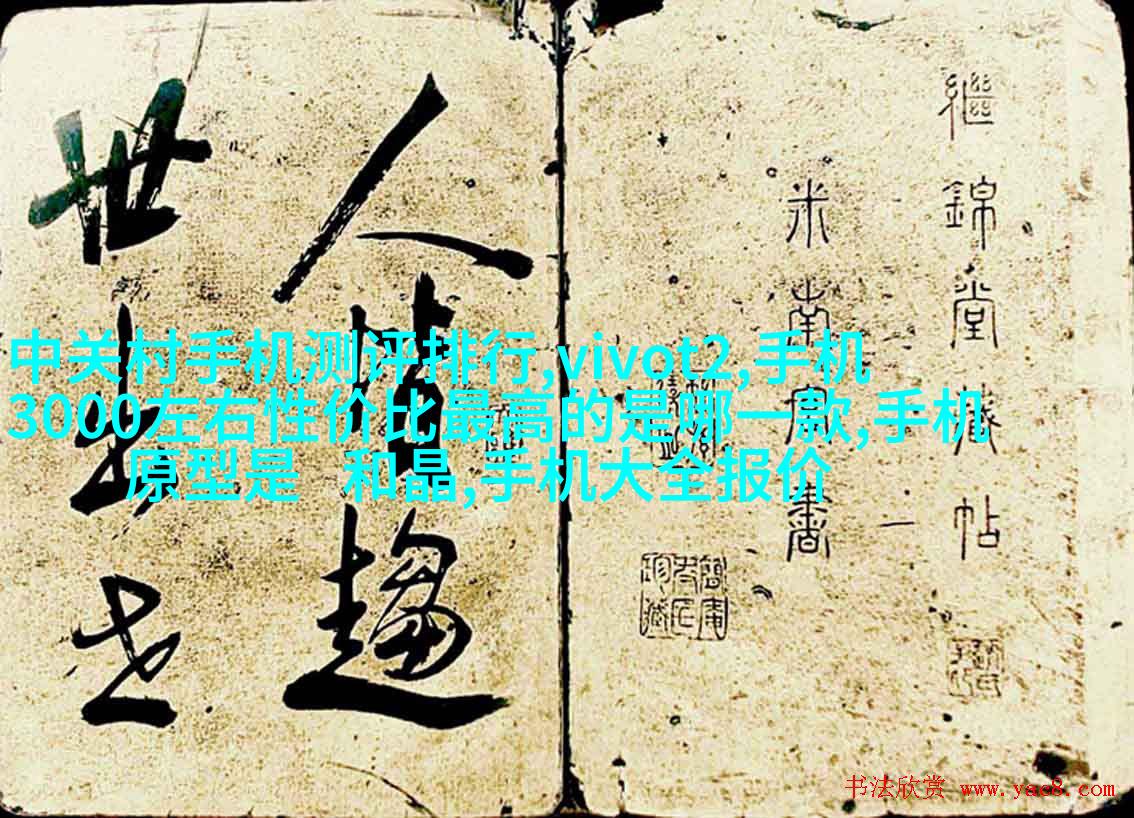 中关村手机测评排行,vivot2,手机
3000左右性价比最高的是哪一款,手机
原型是 和晶,手机大全报价
繼錦堂藏帖
米南宮書 一
人 趨
世
书法欣赏 www.yac8.com